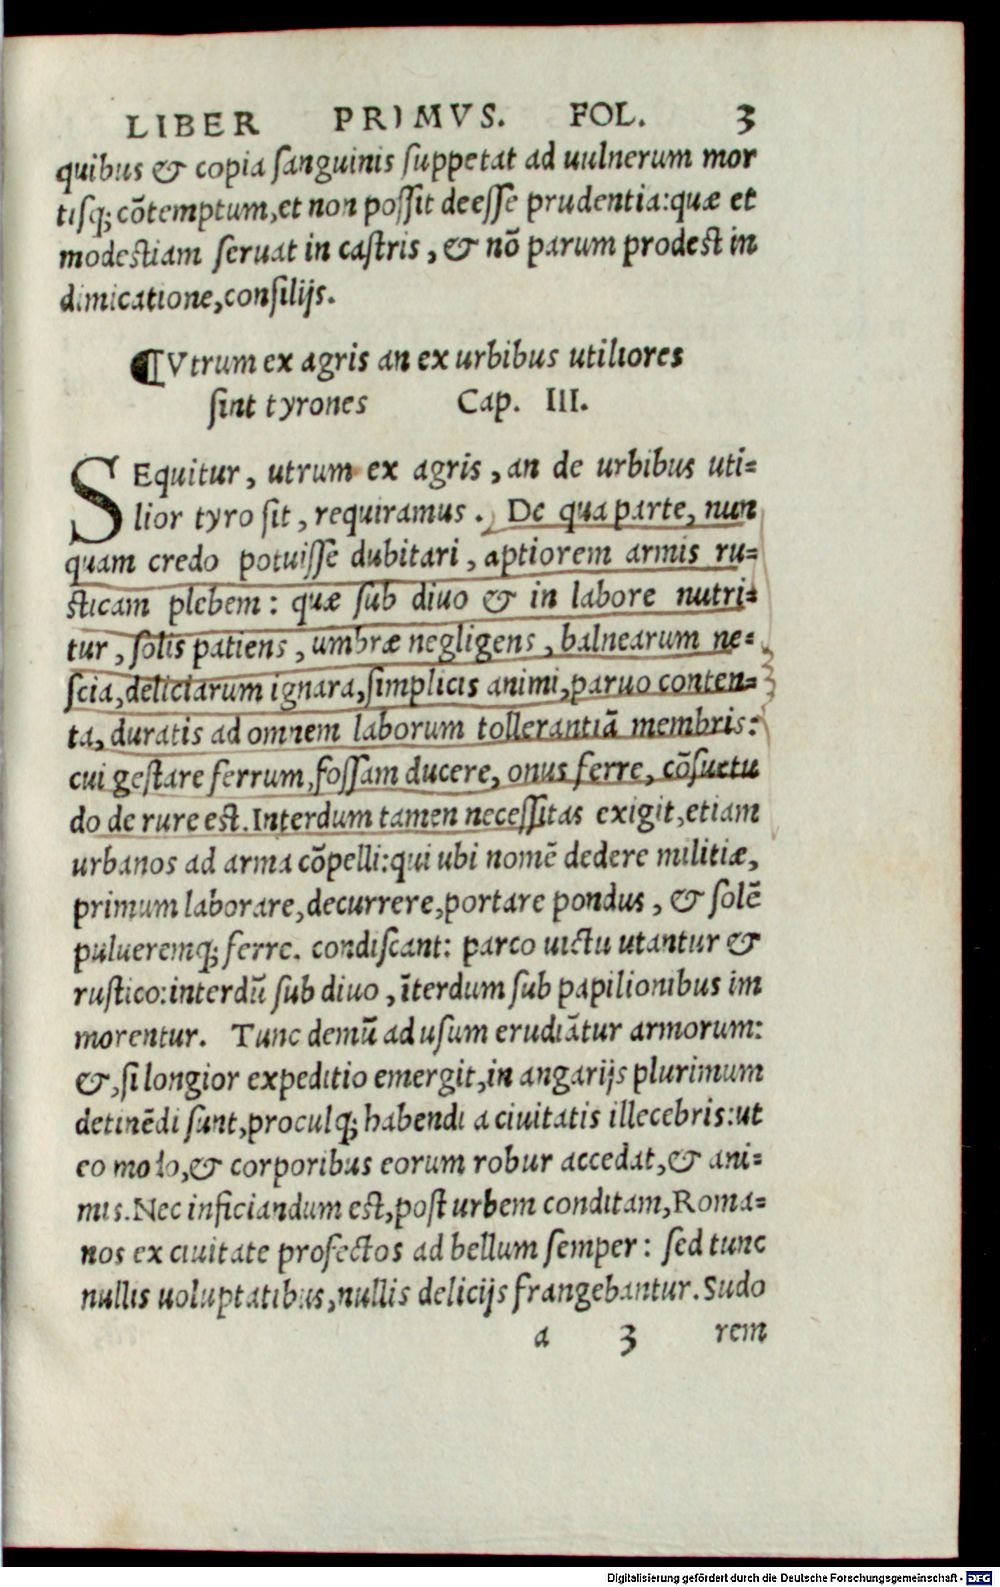 LIBER PRIMVS. FOL. 3
quibus & copia sanguinis suppetat ad uulnerum mor
tisq; cōtemptum, et non possit deesse prudentia: quæ et
modestiam seruat in castris, & nō parum prodest in
dimicatione, consilijs.
¶Vtrum ex agris an ex urbibus utiliores
sint tyrones Cap. III.
SEquitur, utrum ex agris, an de urbibus uti=
lior tyro sit, requiramus. De qua parte, nun
quam credo potuisse dubitari, aptiorem armis ru=
sticam plebem: quæ sub diuo & in labore nutri=
tur, solis patiens, umbræ negligens, balnearum ne=
scia, deliciarum ignara, simplicis animi, paruo conten=
ta, duratis ad omnem laborum tollerantiā membris:
cui gestare ferrum, fossam ducere, onus ferre, cōsuetu
do de rure est. Interdum tamen necessitas exigit, etiam
urbanos ad arma cōpelli: qui ubi nomē dedere militiæ,
primum laborare, decurrere, portare pondus, & solē
pulueremq; ferre. condiscant: parco uictu utantur &
rustico: interdū sub diuo, īterdum sub papilionibus im
morentur. Tunc demū ad usum erudiātur armorum:
&, si longior expeditio emergit, in angarijs plurimum
detinēdi sunt, proculq; habendi a ciuitatis illecebris: ut
eo modo, & corporibus eorum robur accedat, & ani=
mis. Nec inficiandum est, post urbem conditam, Roma=
nos ex ciuitate profectos ad bellum semper: sed tunc
nullis uoluptatibus, nullis delicijs frangebantur. Sudo
a 3 rem
Digitalisierung gefördert durch die Deutsche Forschungsgemeinschaft - DFG